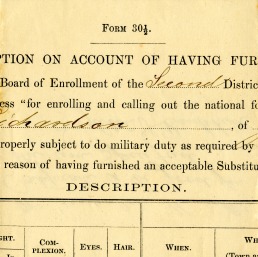 Form 30½.
PTION ON ACCOUNT OF HAVING FUR
Board of Enrollment of the Second District
ess "for enrolling and calling out the national fo
ichardson, of
roperly subject to do military duty as required by
reason of having furnished an acceptable Substitu
DESCRIPTION.
GHT. Com-plexion. Eyes. Hair. When. Wh
In. (Town a